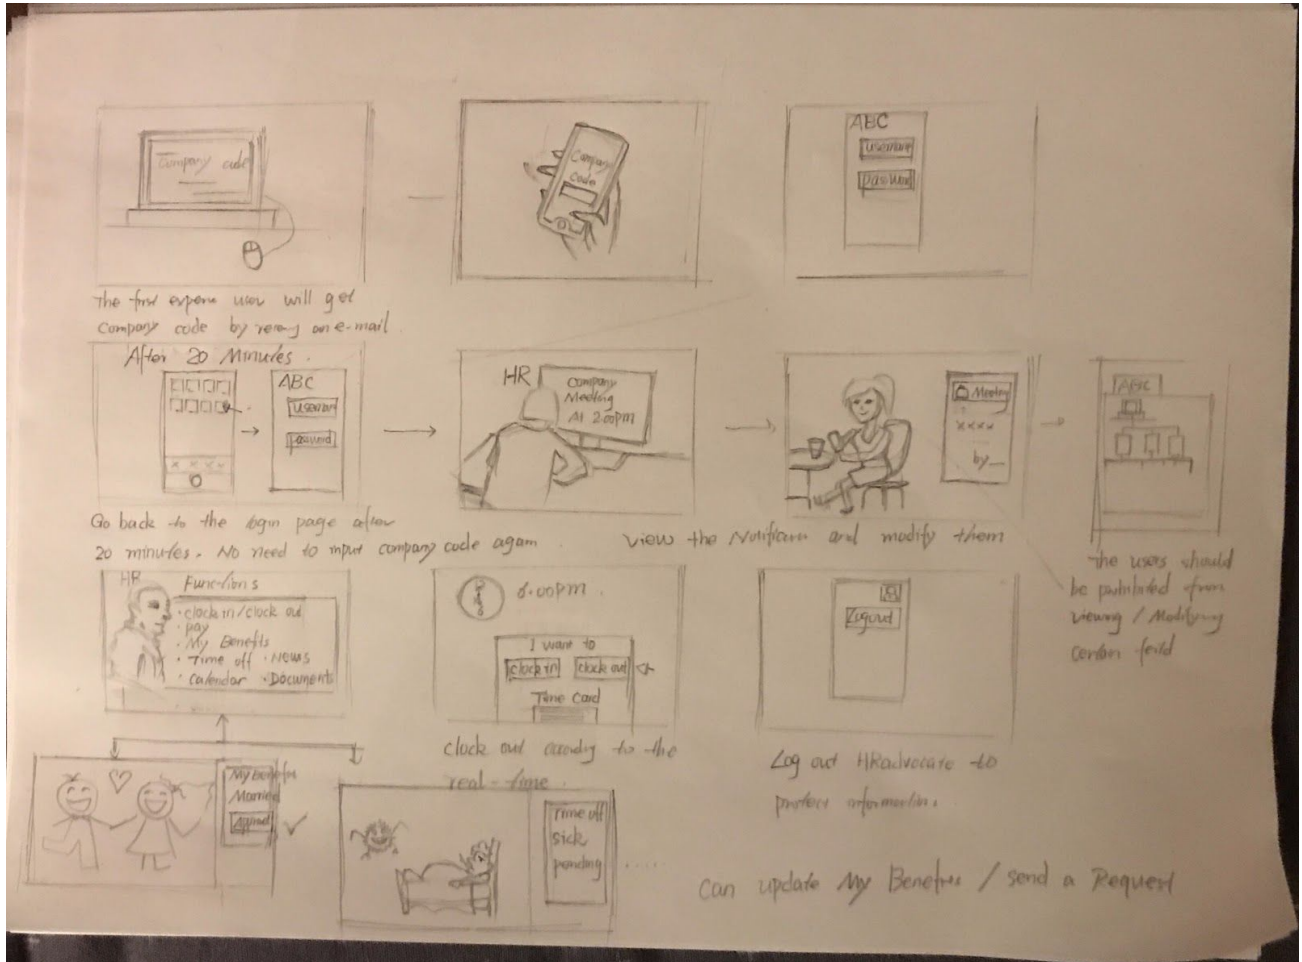 Company code
Company
Code
ABC
username
password
The first experie user will get
Company code by an e-mail
After 20 Minutes.
ABC
username
password
HR
Company
Meeting
At 2:00pm
Meeting
xxxx
by
ABC
Go back to the login page after
20 minutes. No need to input company code again
View the and modify them
The users should
be from
viewing / Modifying
certain feild
HR
Functions
· Clock in/clock out
· pay
· My Benefits
· Time off · News
· Calendar · Documents
6:00pm
I want to
clock in clock out
Time Card
Clock out to the
real-time.
Logout
Log out HRadvocate to
protect information.
My Benefits
Married
Time off
sick
pending
......
Can update My Benefits / send a Request